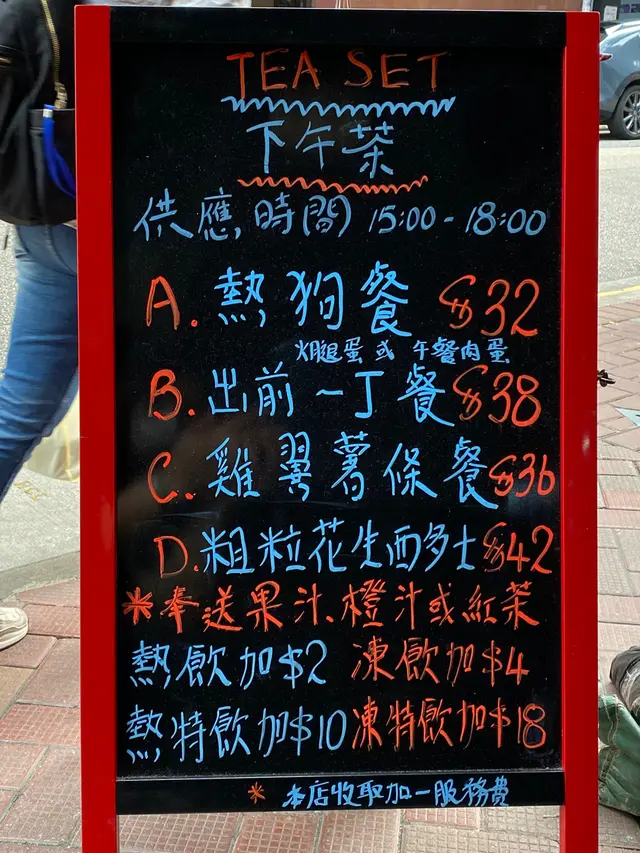 TEA SET
下午茶
供應時間 15:00 - 18:00
A. 熱狗餐 $32
火腿蛋 或 午餐肉蛋
B. 出前一丁餐 $38
C. 雞翼薯條餐 $36
D. 粗粒花生西多士 $42
*奉送果汁、橙汁或紅茶
熱飲加$2 凍飲加$4
熱特飲加$10 凍特飲加$18
* 本店收取加一服務費